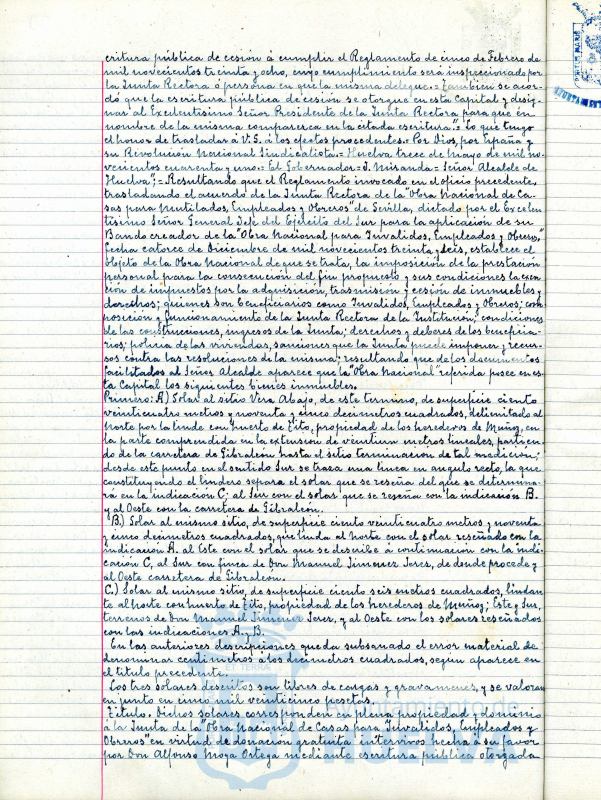 critura pública de cesión á cumplir el Reglamento de cinco de Febrero de
mil novecientos treinta y ocho, cuyo cumplimiento será inspeccionado por
la Junta Rectora ó persona en que la misma delegue.= También se acor-
dó que la escritura pública de cesión se otorgue en esta Capital y desig-
nar al Excelentísimo Señor Presidente de la Junta Rectora para que en
nombre de la misma comparezca en la citada escritura".= Lo que tengo
el honor de trasladar á V.S. á los efectos procedentes.= Por Dios, por España y
su Revolución Nacional Sindicalista.= Huelva trece de Mayo de mil no-
vecientos cuarenta y uno.= El Gobernador= J. Miranda= Señor Alcalde de
Huelva";= Resultando que el Reglamento invocado en el oficio precedente,
trasladando el acuerdo de la Junta Rectora de la "Obra Nacional de Ca-
sas para Mutilados, Empleados y Obreros" de Sevilla, dictado por el Excelen-
tísimo Señor General Jefe del Ejército del Sur para la aplicación de su
Bando creador de la "Obra Nacional para Inválidos, Empleados y Obreros,"
fecha catorce de Diciembre de mil novecientos treinta y seis, establece el
objeto de la Obra Nacional de que se trata, la imposición de la prestación
personal para la consecución del fin propuesto y sus condiciones la exen-
ción de impuestos por la adquisición, trasmisión y cesión de inmuebles y
derechos; quienes son beneficiarios como Inválidos, Empleados y Obreros; com-
posición y funcionamiento de la Junta Rectora de la Institución; condiciones
de las construcciones, ingresos de la Junta; derechos y deberes de los beneficia-
rios; policía de las viviendas, sanciones que la Junta puede imponer y recur-
sos contra las resoluciones de la misma; resultando que de los documentos
facilitados al Señor Alcalde aparece que la "Obra Nacional" referida posee en es-
ta Capital los siguientes bienes inmuebles.
Primero: A) Solar al sitio Vera Abajo, de este termino, de superficie ciento
veinticuatro metros y noventa y cinco decimetros cuadrados, delimitado al
Norte por la linde con huerto de Tito, propiedad de los herederos de Muñoz, en
la parte comprendida en la extensión de veintiun metros lineales, partien-
do de la carretera de Gibraleón hasta el sitio terminación de tal medición;
desde este punto en el sentido Sur se traza una linea en angulo recto, la que
constituyendo el lindero separa el solar que se reseña del que se determina-
rá en la indicación C, al Sur con el solar que se reseña con la indicación B.
y al Oeste con la carretera de Gibraleón.
B.) Solar al mismo sitio, de superficie ciento veinticuatro metros y noventa
y cinco decimetros cuadrados, que linda al Norte con el solar reseñado con la
indicación A. al Este con el solar que se describe á continuación con la indi-
cación C, al Sur con finca de Don Manuel Jimenez Jerez, de donde procede y
al Oeste carretera de Gibraleón.
C.) Solar al mismo sitio, de superficie ciento seis metros cuadrados, lindan-
te al Norte con huerto de Tito, propiedad de los herederos de Muñoz; Este y Sur,
terrenos de Don Manuel Jimenez Jerez, y al Oeste con los solares reseñados
con las indicaciones A. y B.
En las anteriores descripciones queda subsanado el error material de
denominar centimetros á los decimetros cuadrados, segun aparece en
el titulo precedente.
Los tres solares descritos son libres de cargas y gravamenes, y se valoran
en junto en cinco mil veinticinco pesetas.
Titulo. Dichos solares corresponden en plena propiedad y dominio
á la Junta de la "Obra Nacional de Casas para Inválidos, Empleados y
Obreros" en virtud de donación gratuita intervivos hecha á su favor
por Don Alfonso Moya Ortega mediante escritura pública otorgada
Ayuntamiento de
HUELVA
PORTUS MARIS